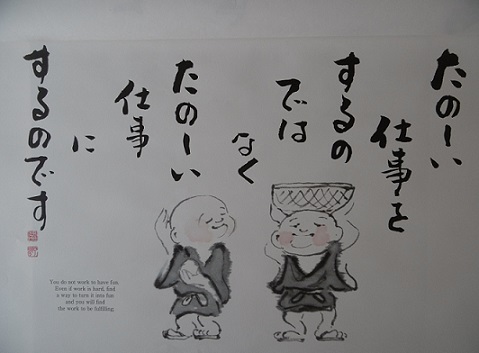 たのーい
仕事を
するの
では
なく
たのーい
仕事
に
するのです
You do not work to have fun.
Even if work is hard, find
a way to turn it into fun
and you will find
the work to be fulfilling.